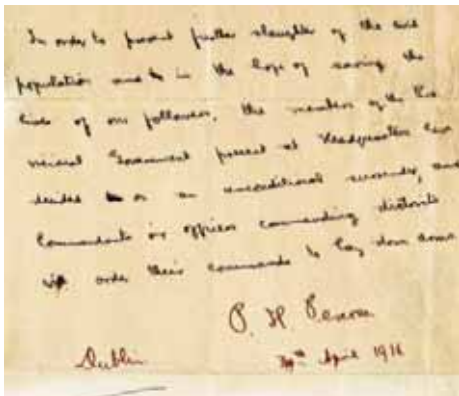 In order to prevent further slaughter of the civil
population and in the hope of saving the
lives of our followers, the members of the Pro-
visional Government present at Headquarters have
decided on an unconditional surrender, and
Commandants or officers commanding districts
will order their commands to lay down arms
P. H. Pearse
Dublin
30th April 1916